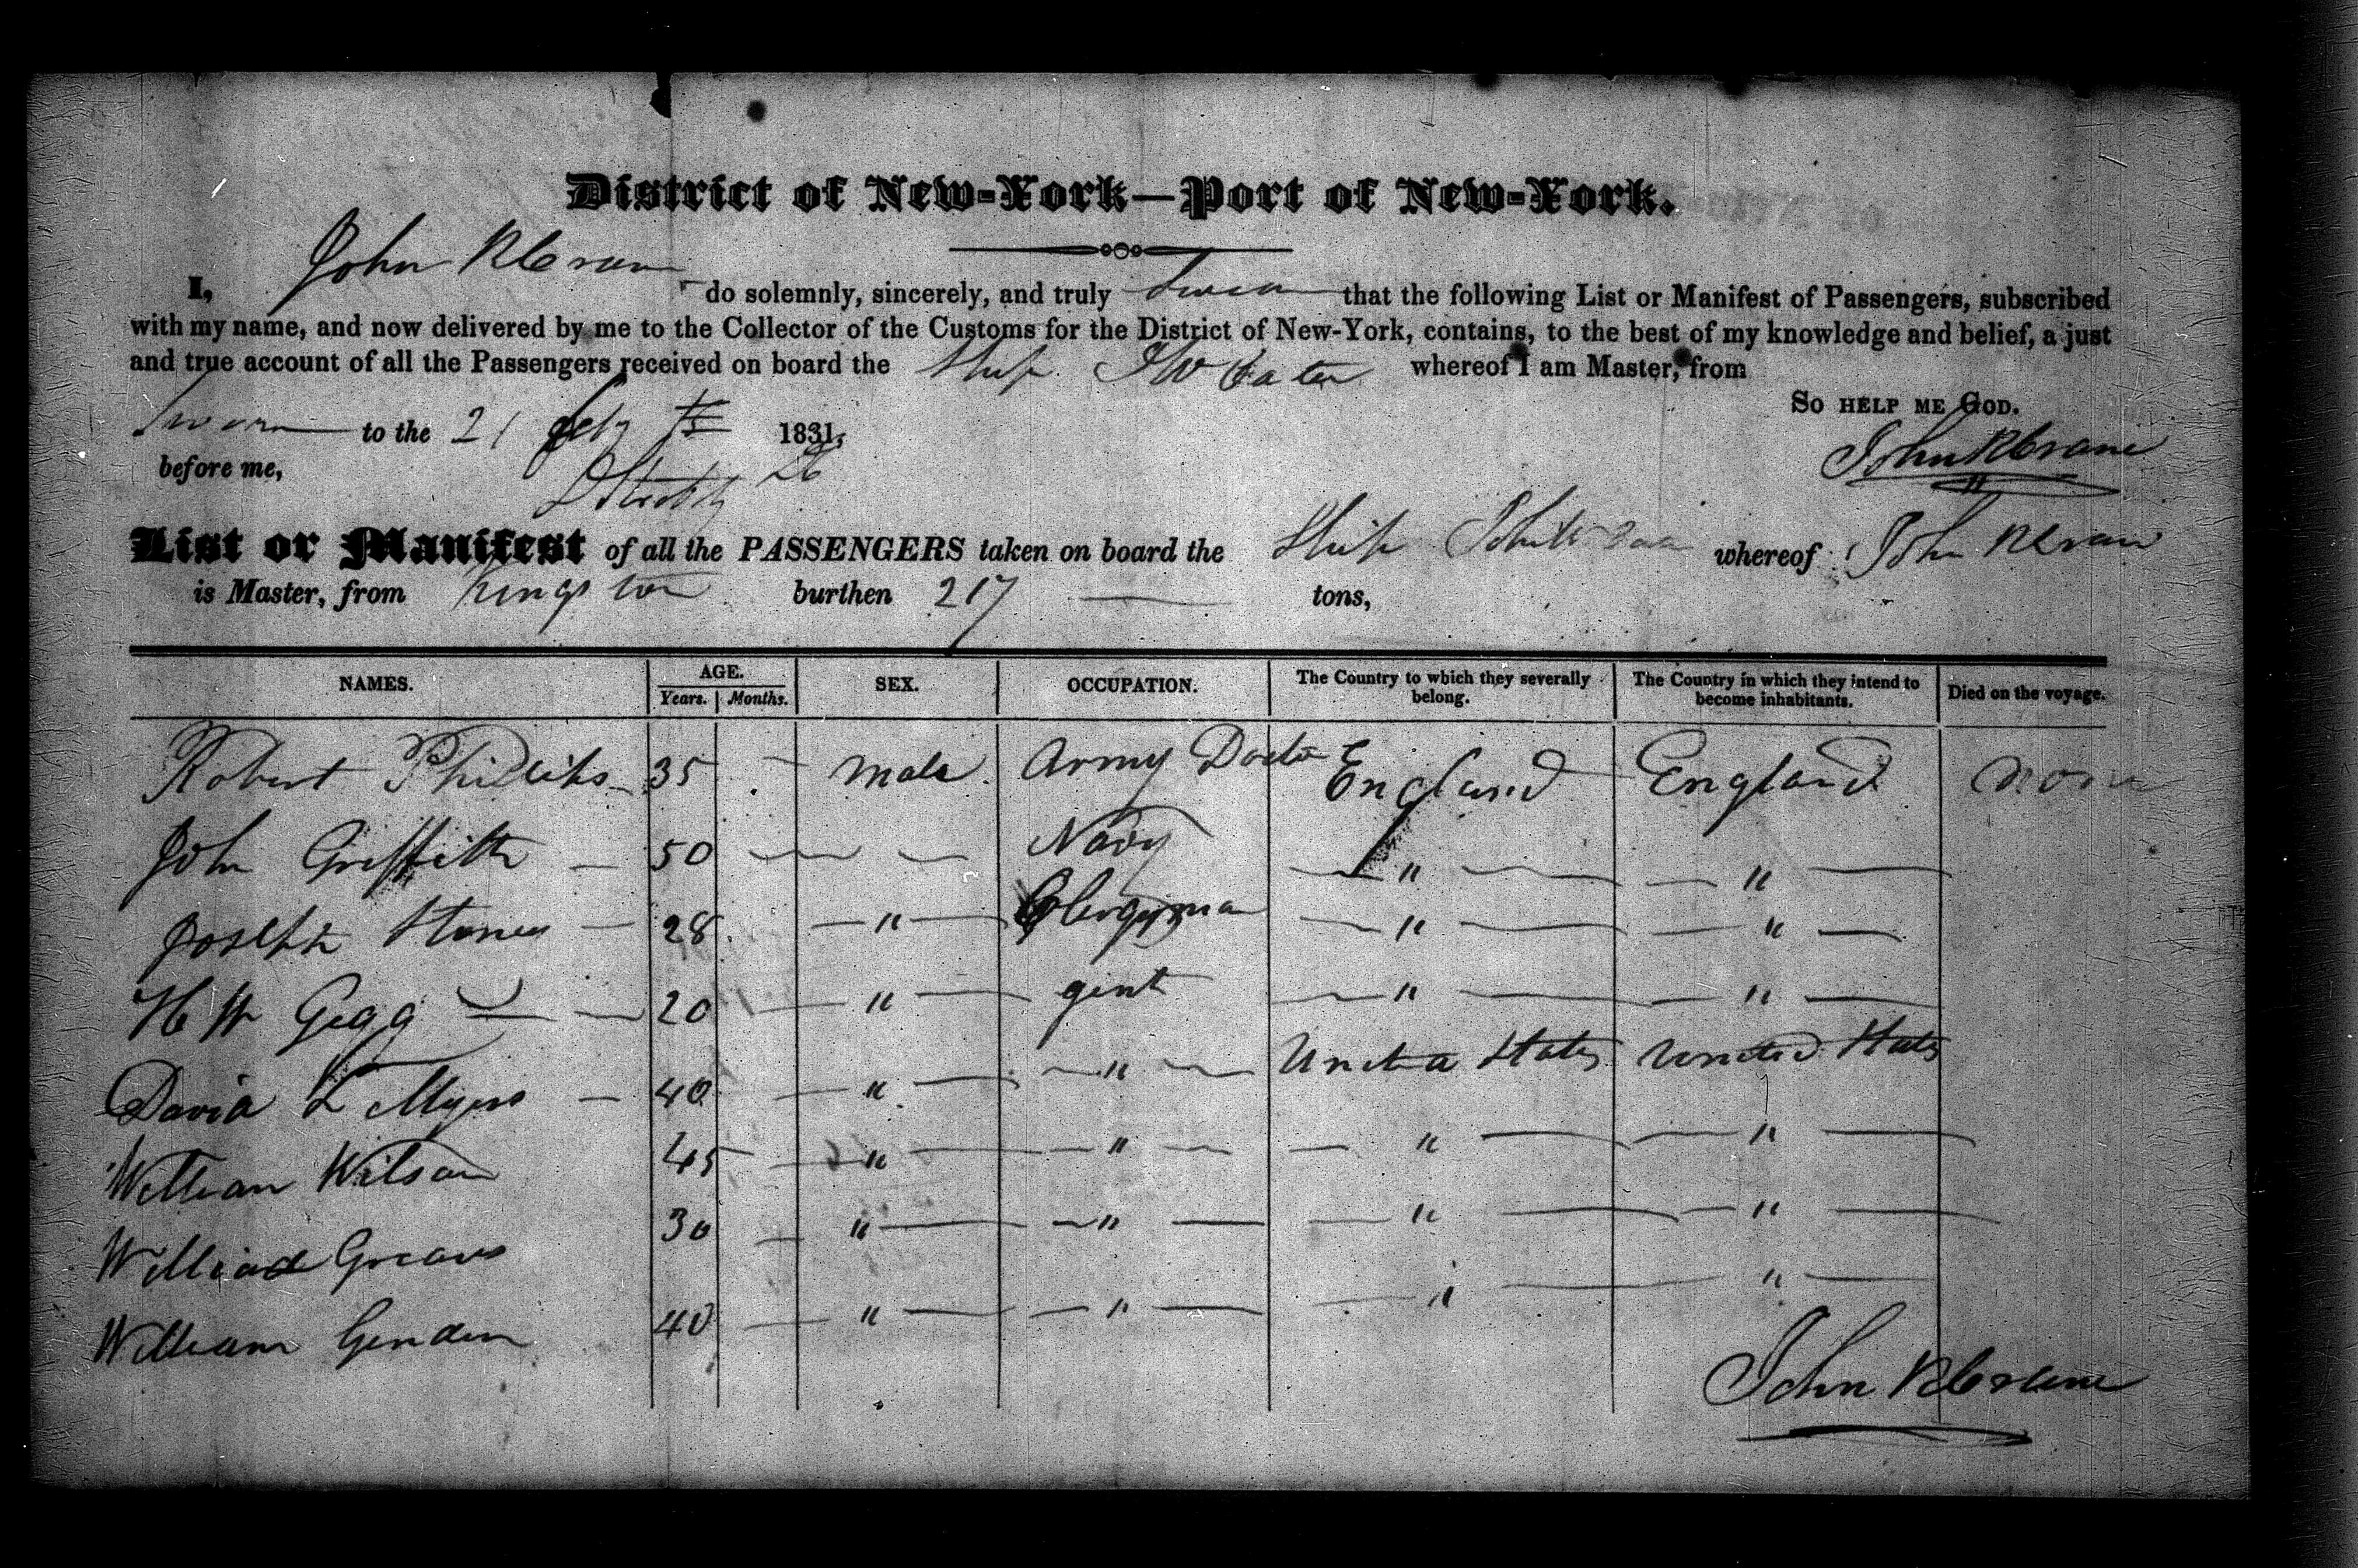 District of New-York—Port of New-York.
I, John R Crane do solemnly, sincerely, and truly swear that the following List or Manifest of Passengers, subscribed
with my name, and now delivered by me to the Collector of the Customs for the District of New-York, contains, to the best of my knowledge and belief, a just
and true account of all the Passengers received on board the Ship whereof I am Master, from
So HELP ME GOD.
Sworn to the 21 1831,
before me,
John R Crane
List or Manifest of all the PASSENGERS taken on board the Ship whereof John R Crane
is Master, from Kingston burthen 217 tons,
NAMES. AGE. Years. Months. SEX. OCCUPATION. The Country to which they severally belong. The Country in which they intend to become inhabitants. Died on the voyage.
Robert Phillips 35 male Army Doctor England England none
John Griffith 50 Navy " "
Joseph 28 " Clergyman " "
H W Gegg 20 " gent " "
David L Myers 40 " " United States United States
William Wilson 45 " " " "
William Greaves 30 " " " "
William 40 " " " "
John R Crane